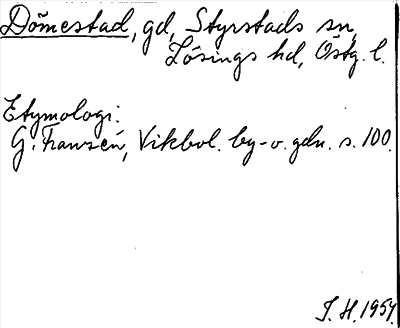 Dömestad, gd, Styrstads sn,
Lösings hd, Östg. l.
Etymologi:
G. Franzén, Vikbol. by- o. gdn. s. 100.
J. H. 1957.